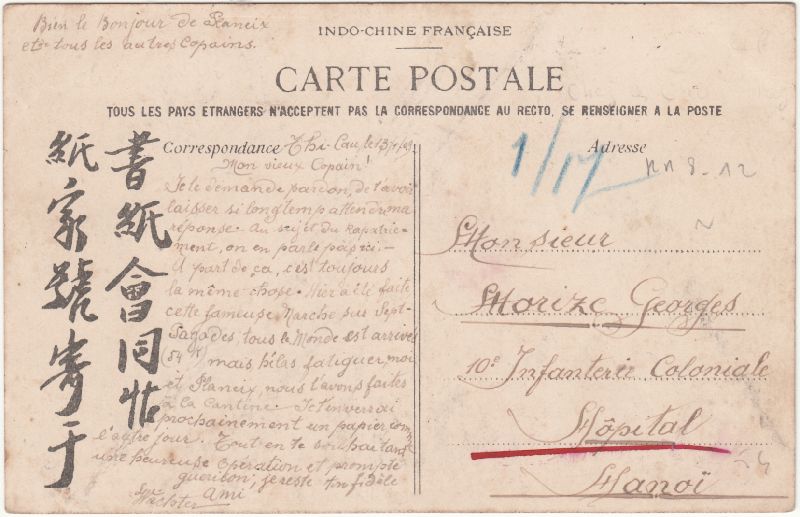 Bien le Bonjour de Planeix
et de tous les autres Copains.
INDO-CHINE FRANÇAISE
CARTE POSTALE
TOUS LES PAYS ETRANGERS N'ACCEPTENT PAS LA CORRESPONDANCE AU RECTO, SE RENSEIGNER A LA POSTE
書紙會同帖
紙家號寄于
Correspondance Thi-Cau, le 13/1/09
Mon vieux Copain!
Je te demande pardon, de t'avoir
laisser si longtemp attendre ma
réponse. Au sujet du Rapatrie-
ment, on en parle pas ici.-
A part de ça, c'est toujours
la même chose. Hier a été faite
cette fameuse Marche sur Sept-
Pagodes, tous le Monde est arrivés
(54 K) mais hélas fatiguer, moi
et Planeix, nous l'avons faites
à la Cantine. Je t'enverrai
prochainement un papier, comme
l'autre jour. Tout en te souhaitant
une heureuse opération et prompte
guérison, je reste ton fidèle
Ami
Wächter
Adresse
1/17
Monsieur
Morize Georges
10e Infanterie Coloniale
Hôpital
Hanoï